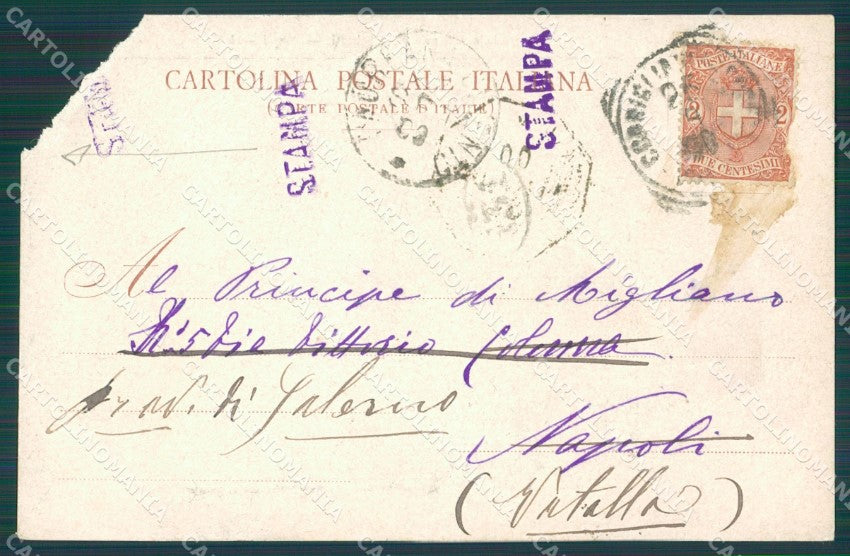 CARTOLINA POSTALE ITALIANA
(CARTE POSTALE D'ITALIE)
STAMPA
STAMPA
STAMPA
POSTE ITALIANE
2 2
DUE CENTESIMI
Al Principe di Migliano
Vittorio Colonna
Prov. di Salerno
Napoli
(Vatolla)
CARTOLINOMANIA